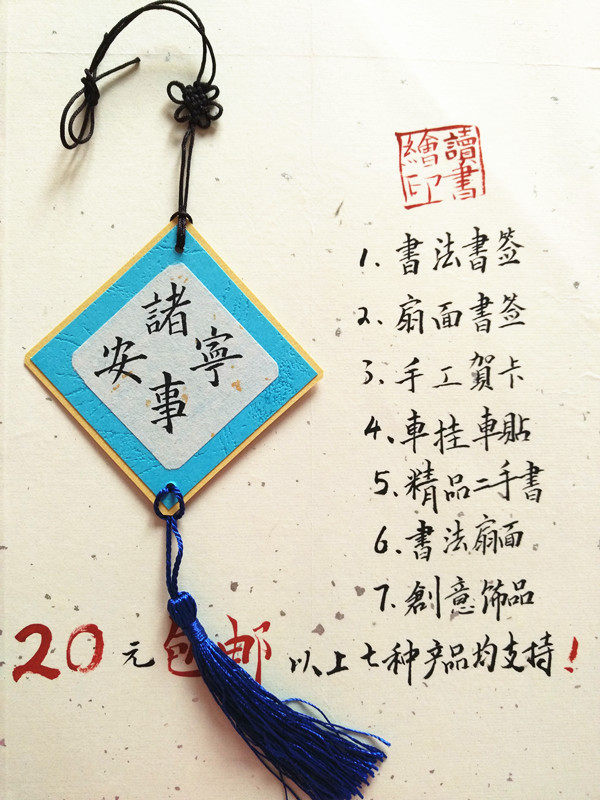 諸事安寧
讀書
繪印
1. 書法書签
2. 扇面書签
3. 手工賀卡
4. 車挂車貼
5. 精品二手書
6. 書法扇面
7. 創意飾品
20元包邮 以上七种产品均支持!